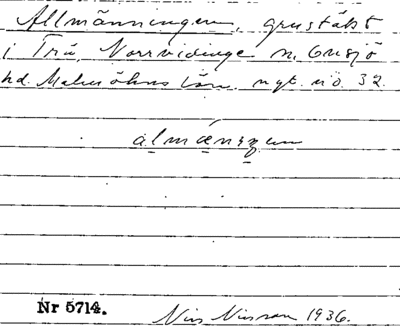 Allmänningen, grustäkt
i Trä, Norrvidinge sn, Onsjö
hd. Malmöhus län. ngt. nö. 32.
almæningen
Nr 5714.
Nils Nilsson 1936.